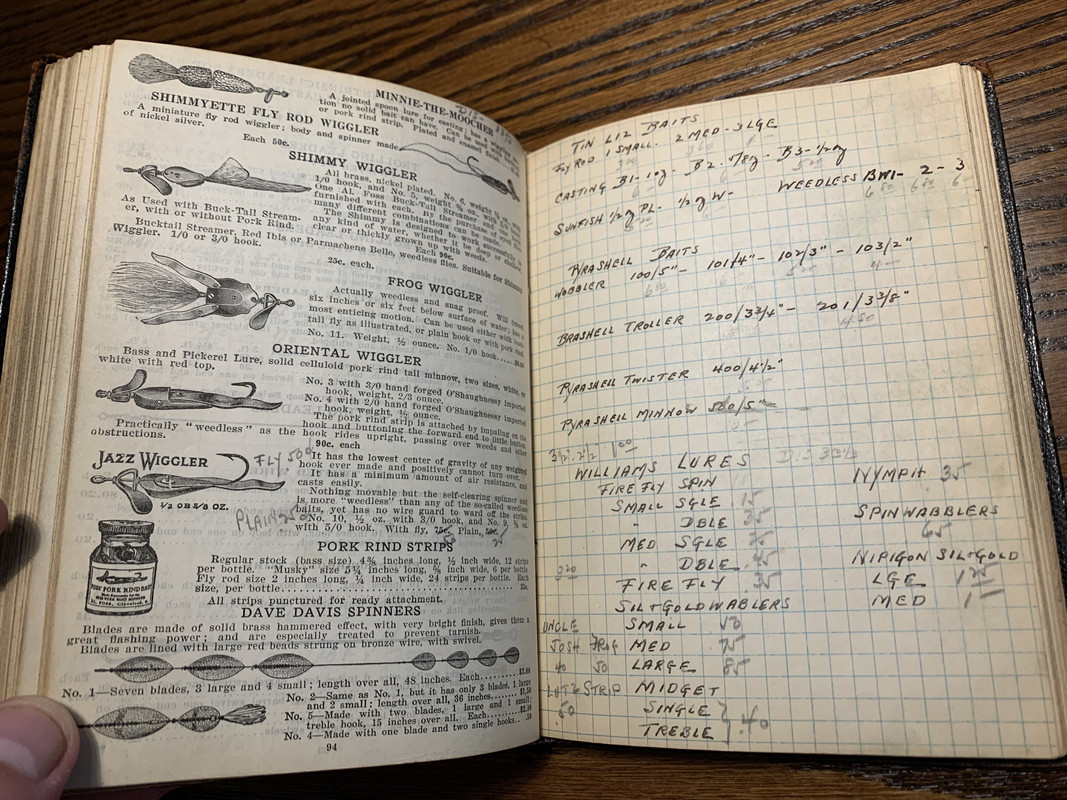 MINNIE-THE-MOOCHER
A jointed spoon lure for casting; has a
tion no solid bait can have. Can be used
or pork rind strip. Plated and enamel
SHIMMYETTE FLY ROD WIGGLER
A miniature fly rod wiggler; body and spinner made
of nickel silver.
Each 50c.
SHIMMY WIGGLER
All brass, nickel plated. No. 6, weight
1/0 hook, and No. 5, weight
One Al. Foss Buck-Tail Streamer
furnished with each. By the purchase of
many different combinations can be
The Shimmy is designed to work successfully in
any kind of water, whether it be deep or shallow,
clear or thickly grown up with weeds.
Each 90c.
As Used with Buck-Tail Stream-
er, with or without Pork Rind.
Bucktail Streamer, Red Ibis or Parmachene Belle, weedless flies. Suitable for Shimmy
Wiggler. 1/0 or 3/0 hook.
25c. each.
FROG WIGGLER
Actually weedless and snag proof. Will travel
six inches or six feet below surface of water; has a
most enticing motion. Can be used either with
tail fly as illustrated, or plain hook or with pork rind.
No. 11. Weight, ½ ounce. No. 1/0 hook
ORIENTAL WIGGLER
Bass and Pickerel Lure, solid celluloid pork rind tail minnow, two sizes, white, or
white with red top.
No. 3 with 3/0 hand forged O'Shaughnessy imported
hook, weight, 2/3 ounce.
No. 4 with 2/0 hand forged O'Shaughnessy imported
hook, weight, ½ ounce.
The pork rind strip is attached by impaling on the
hook and buttoning the forward end to little button.
hook rides upright, passing over weeds and other
Practically "weedless" as the
obstructions.
90c. each
JAZZ WIGGLER
FLY 500
½ OR 5/8 OZ.
PLAIN 250
It has the lowest center of gravity of any weighted
hook ever made and positively cannot turn over.
It has a minimum amount of air resistance, and
casts easily.
Nothing movable but the self-clearing spinner and
is more "weedless" than any of the so-called weedless
baits, yet has no wire guard to ward off the strike.
No. 10, ½ oz. with 3/0 hook, and No. 9, ⅝ oz.
with 5/0 hook. With fly, 75c. Plain, 50c.
50 25
PORK RIND STRIPS
Regular stock (bass size) 4⅜ inches long, ⅝ inch wide, 12 strips
per bottle. "Musky" size 5¾ inches long, ⅝ inch wide, 6 per bottle.
Fly rod size 2 inches long, ¼ inch wide, 24 strips per bottle. Each
size, per bottle
All strips punctured for ready attachment.
PORK RIND BAIT
DAVE DAVIS SPINNERS
Blades are made of solid brass hammered effect, with very bright finish, gives them a
great flashing power; and are especially treated to prevent tarnish.
Blades are lined with large red beads strung on bronze wire, with swivel.
No. 1—Seven blades, 3 large and 4 small; length over all, 48 inches. Each
No. 2—Same as No. 1, but it has only 3 blades, 1 large
and 2 small; length over all, 36 inches
No. 5—Made with two blades, 1 large and 1 small;
treble hook, 15 inches over all. Each
No. 4—Made with one blade and two single hooks
94
TIN LIZ BAITS
FLY ROD 1 SMALL. 2 MED - 3 LGE
CASTING B1-1oz - B2. 5/8oz - B3-½oz
SUNFISH ½oz PL. ½oz W- WEEDLESS BW1- 2 - 3
PYRASHELL BAITS
WOBBLER 100/5"- 101/4"- 102/3" - 103/2"
BRASHELL TROLLER 200/3¾"- 201/3⅜"
PYRASHELL TWISTER 400/4½"
PYRASHELL MINNOW 500/5"
WILLIAMS LURES DIS 33⅓
FIRE FLY SPIN
SMALL SGLE 15
" DBLE 35
MED SGLE 25
" DBLE 45
FIRE FLY 35
SIL+GOLD WABLERS
SMALL 50
MED 75
LARGE 85
MIDGET
SINGLE } .40
TREBLE
NYMPH 35
SPINWABBLERS
65
NIPIGON SIL+GOLD
LGE 125
MED 1—
UNCLE
JOSH FROG
40 50
STRIP
50